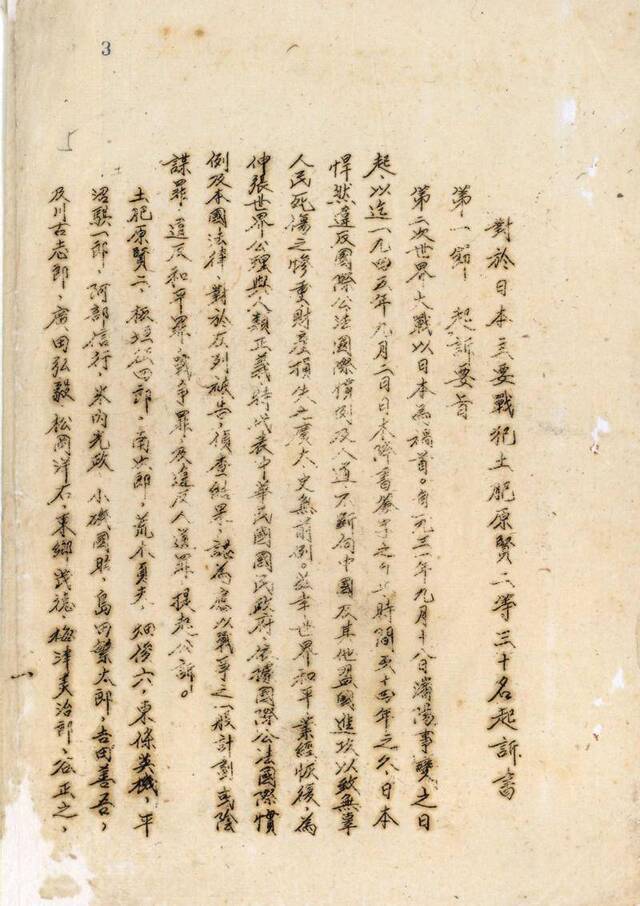 3
對於日本主要戰犯土肥原賢二等三十名起訴書
第一節 起訴要旨
第二次世界大戰以日本為禍首。自一九三一年九月十八日瀋陽事變之日
起，以迄一九四五年九月二日日本降書簽字之日止時間至十四年之久，日本
悍然違反國際公法國際慣例及人道不斷向中國及其他盟國進攻以致無辜
人民死傷之慘重財產損失之廣大史無前例。茲幸世界和平業經恢復，為
伸張世界公理與人類正義，特代表中華民國國民政府，依據國際公法國際慣
例及本國法律，對於左列被告，偵查結果，認為應以戰爭之一般計劃或陰
謀罪，違反和平罪，戰爭罪，及違反人道罪，提起公訴。
土肥原賢二，板垣征四郎，南次郎，荒木貞夫，畑俊六，東條英機，平
沼騏一郎，阿部信行，米內光政，小磯國昭，島田繁太郎，吉田善吾，
及川古志郎，廣田弘毅，松岡洋右，東鄉茂德，梅津美治郎，谷正之，